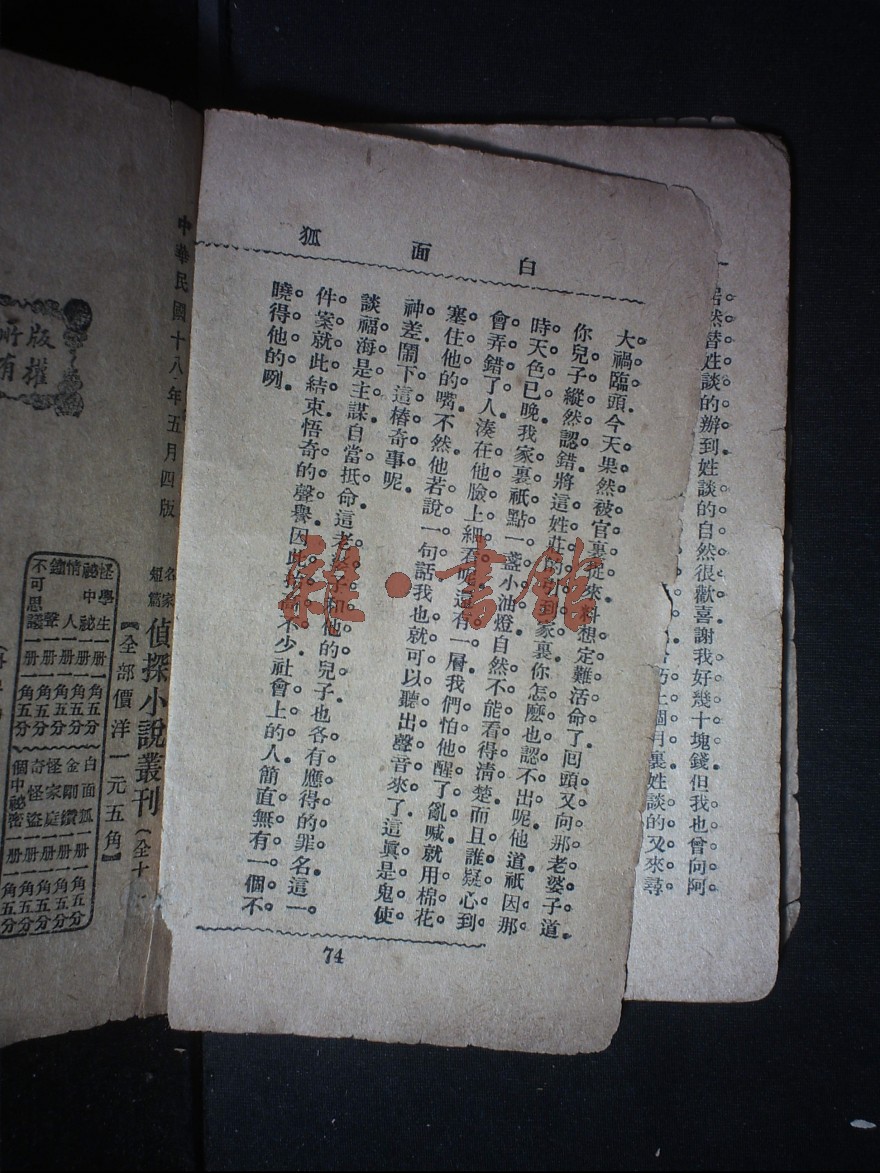 居然替姓談的辦到姓談的自然很歡喜謝我好幾十塊錢但我也曾向阿
個月裏姓談的又來尋
白面狐
大禍臨頭。今天果然被官裏捉來料想定難活命了囘頭又向那老婆子道
你兒子縱然認錯將這姓莊的到家裏你怎麽也認不出呢他道祇因那
時天色已晚我家裏祇點一盞小油燈自然不能看得清楚而且誰疑心到
會弄錯了人湊在他臉上細看呢還有一層我們怕他醒了亂喊就用棉花
塞住他的嘴不然他若說一句話我也就可以聽出聲音來了這眞是鬼使
神差鬧下這樁奇事呢
談福海是主謀自當抵命這老婆子和他的兒子也各有應得的罪名這一
件案就此結束悟奇的聲譽因此不少社會上的人簡直無有一個不
曉得他的咧
74
中華民國十八年五月四版
版權所有
名家短篇
偵探小說叢刊(全十
【全部價洋一元五角】
怪學生一册一角五分
祕中祕一册一角五分
情人一册一角五分
鐘聲一册一角五分
不可思議一册一角五分
白面狐一册一角五分
金剛鑽一册一角五分
怪家庭一册一角五分
奇怪盜一册一角五分
個中祕密一册一角五分
雜·書館